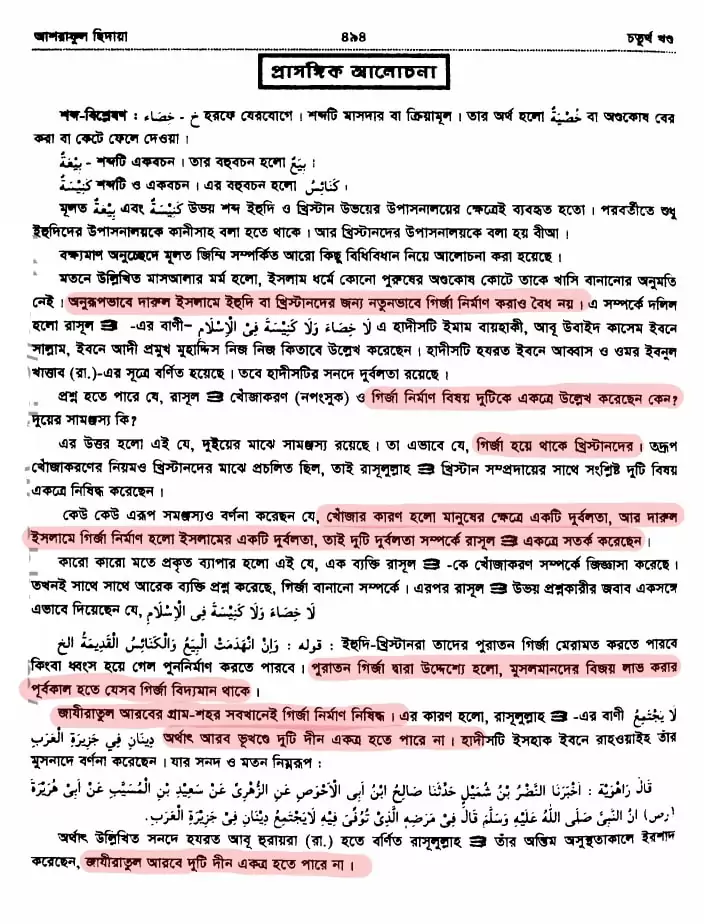 আশরাফুল হিদায়া ৪৯৪ চতুর্থ খণ্ড
প্রাসঙ্গিক আলোচনা
শব্দ-বিশ্লেষণ : خِصَاء - خ হরফে যেরযোগে। শব্দটি মাসদার বা ক্রিয়ামূল। তার অর্থ হলো خُصْيَةٌ বা অণ্ডকোষ বের
করা বা কেটে ফেলে দেওয়া।
بِيْعَةٌ - শব্দটি একবচন। তার বহুবচন হলো بِيَعٌ ।
كَنِيْسَةٌ শব্দটি ও একবচন। এর বহুবচন হলো كَنَائِسُ ।
মূলত بِيْعَةٌ এবং كَنِيْسَةٌ উভয় শব্দ ইহুদি ও খ্রিস্টান উভয়ের উপাসনালয়ের ক্ষেত্রেই ব্যবহৃত হতো। পরবর্তীতে শুধু
ইহুদিদের উপাসনালয়কে কানীসাহ বলা হতে থাকে। আর খ্রিস্টানদের উপাসনালয়কে বলা হয় বীআ।
বক্ষ্যমাণ অনুচ্ছেদে মূলত জিম্মি সম্পর্কিত আরো কিছু বিধিবিধান নিয়ে আলোচনা করা হয়েছে।
মতনে উল্লিখিত মাসআলার মর্ম হলো, ইসলাম ধর্মে কোনো পুরুষের অণ্ডকোষ কেটে তাকে খাসি বানানোর অনুমতি
নেই। অনুরূপভাবে দারুল ইসলামে ইহুদি বা খ্রিস্টানদের জন্য নতুনভাবে গির্জা নির্মাণ করাও বৈধ নয়। এ সম্পর্কে দলিল
হলো রাসূল ﷺ -এর বাণী– لَا خِصَاءَ وَلَا كَنِيْسَةَ فِى الْاِسْلَامِ এ হাদীসটি ইমাম বায়হাকী, আবূ উবাইদ কাসেম ইবনে
সাল্লাম, ইবনে আদী প্রমুখ মুহাদ্দিস নিজ নিজ কিতাবে উল্লেখ করেছেন। হাদীসটি হযরত ইবনে আব্বাস ও ওমর ইবনুল
খাত্তাব (রা.)-এর সূত্রে বর্ণিত হয়েছে। তবে হাদীসটির সনদে দুর্বলতা রয়েছে।
প্রশ্ন হতে পারে যে, রাসূল ﷺ খোঁজাকরণ (নপংসুক) ও গির্জা নির্মাণ বিষয় দুটিকে একত্রে উল্লেখ করেছেন কেন?
দুয়ের সামঞ্জস্য কি?
এর উত্তর হলো এই যে, দুইয়ের মাঝে সামঞ্জস্য রয়েছে। তা এভাবে যে, গির্জা হয়ে থাকে খ্রিস্টানদের। তদ্রূপ
খোঁজাকরণের নিয়মও খ্রিস্টানদের মাঝে প্রচলিত ছিল, তাই রাসূলুল্লাহ ﷺ খ্রিস্টান সম্প্রদায়ের সাথে সংশ্লিষ্ট দুটি বিষয়
একত্রে নিষিদ্ধ করেছেন।
কেউ কেউ এরূপ সমঞ্জস্যও বর্ণনা করেছেন যে, খোঁজার কারণ হলো মানুষের ক্ষেত্রে একটি দুর্বলতা, আর দারুল
ইসলামে গির্জা নির্মাণ হলো ইসলামের একটি দুর্বলতা, তাই দুটি দুর্বলতা সম্পর্কে রাসূল ﷺ একত্রে সতর্ক করেছেন।
কারো কারো মতে প্রকৃত ব্যাপার হলো এই যে, এক ব্যক্তি রাসূল ﷺ -কে খোঁজাকরণ সম্পর্কে জিজ্ঞাসা করেছে।
তখনই সাথে সাথে আরেক ব্যক্তি প্রশ্ন করেছে, গির্জা বানানো সম্পর্কে। এরপর রাসূল ﷺ উভয় প্রশ্নকারীর জবাব একসঙ্গে
এভাবে দিয়েছেন যে, لَا خِصَاءَ وَلَا كَنِيْسَةَ فِى الْاِسْلَامِ
قوله : وَاِنْ انْهَدَمَتْ الْبِيَعُ وَالْكَنَائِسُ الْقَدِيْمَةُ الخ : ইহুদি-খ্রিস্টানরা তাদের পুরাতন গির্জা মেরামত করতে পারবে
কিংবা ধ্বংস হয়ে গেল পুনর্নির্মাণ করতে পারবে। পুরাতন গির্জা দ্বারা উদ্দেশ্যে হলো, মুসলমানদের বিজয় লাভ করার
পূর্বকাল হতে যেসব গির্জা বিদ্যমান থাকে।
জাযীরাতুল আরবের গ্রাম-শহর সবখানেই গির্জা নির্মাণ নিষিদ্ধ। এর কারণ হলো, রাসূলুল্লাহ ﷺ -এর বাণী لَا يَجْتَمِعُ
دِيْنَانِ فِي جَزِيْرَةِ الْعَرَبِ অর্থাৎ আরব ভূখণ্ডে দুটি দীন একত্র হতে পারে না। হাদীসটি ইসহাক ইবনে রাহওয়াইহ তাঁর
মুসনাদে বর্ণনা করেছেন। যার সনদ ও মতন নিম্নরূপ :
قَالَ رَاهْوَيْهِ : اَخْبَرَنَا النَّضْرُ بْنُ شُمَيْلٍ حَدَّثَنَا صَالِحُ ابْنُ اَبِى الْاَخْوَصِ عَنِ الزُّهْرِىِّ عَنْ سَعِيْدِ بْنِ الْمُسَيَّبِ عَنْ اَبِى هُرَيْرَةَ
(رض) اَنَّ النَّبِىَّ صَلَّى اللّٰهُ عَلَيْهِ وَسَلَّمَ قَالَ فِىْ مَرَضِهِ الَّذِىْ تُوُفِّىَ فِيْهِ لَايَجْتَمِعُ دِيْنَانِ فِىْ جَزِيْرَةِ الْعَرَبِ.
অর্থাৎ উল্লিখিত সনদে হযরত আবূ হুরায়রা (রা.) হতে বর্ণিত রাসূলুল্লাহ ﷺ তাঁর অন্তিম অসুস্থতাকালে ইরশাদ
করেছেন, জাযীরাতুল আরবে দুটি দীন একত্র হতে পারে না।